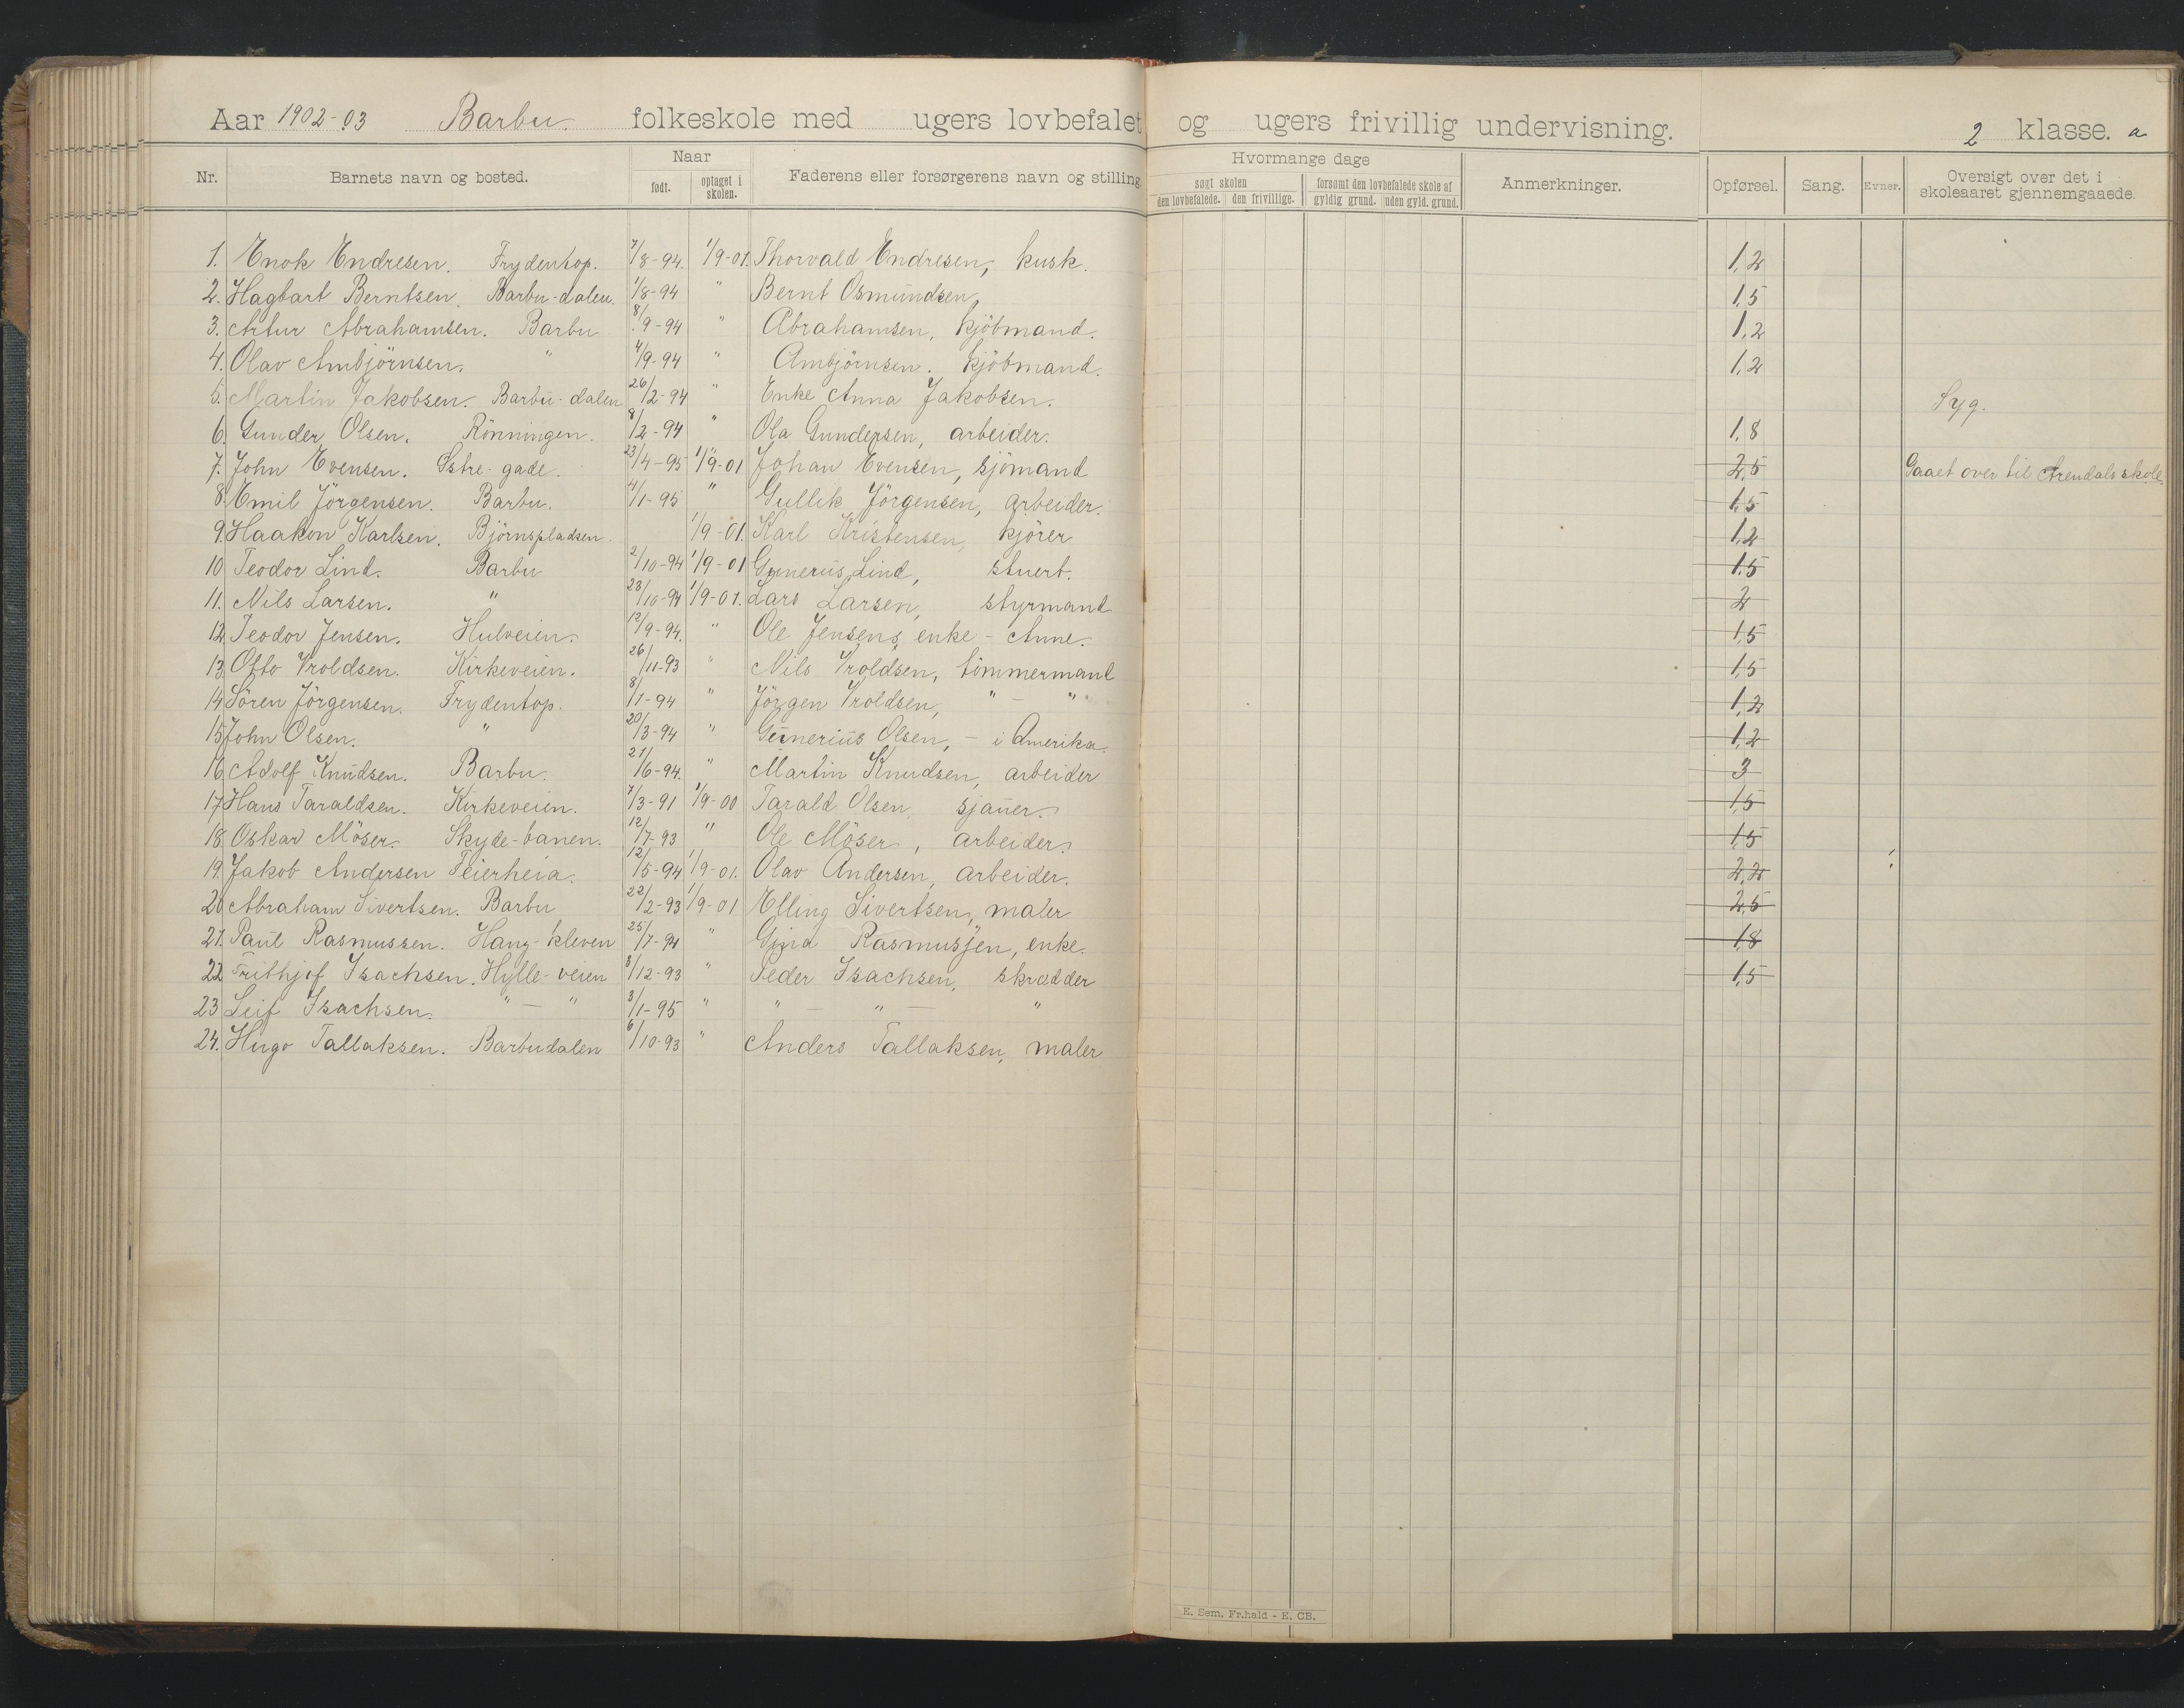 Aar 1902-03 Barbu. folkeskole med ugers lovbefalet og ugers frivillig undervisning. 2 klasse. a
Nr. Barnets navn og bosted. Naar født. optaget i skolen. Faderens eller forsørgerens navn og stilling Hvormange dage søgt skolen den lovbefalede. den frivillige. forsømt den lovbefalede skole af gyldig grund. uden gyld. grund. Anmerkninger. Opførsel. Sang. Evner. Oversigt over det i skoleaaret gjennemgaaede.
1. Enok Endresen. Frydentop. 7/8-94. 1/9-01. Thorvald Endresen, kusk. 1,2
2. Hagbart Berntsen. Barbu-dalen. 1/8-94 " Bernt Osmundsen, 1,5
3. Artur Abrahamsen. Barbu 8/9-94 " Abrahamsen, kjöbmand. 1,2
4. Olav Ambjörnsen. " 4/9-94 " Ambjörnsen. kjöbmand. 1,2
5. Martin Jakobsen. Barbu-dalen 26/2-94 " Enke Anna Jakobsen. Syg.
6. Gunder Olsen. Rönningen. 8/2-94 " Ola Gundersen, arbeider. 1,8
7. John Evensen. Østre-gade. 23/4-95 1/9-01 Johan Evensen, sjömand 2,5 Gaaet over til Arendals skole.
8. Emil Jörgensen. Barbu. 4/1-95 " Gullik Jörgensen, arbeider. 1,5
9. Haakon Karlsen. Björnspladsen. 1/9-01. Karl Kristensen, kjörer 1,2
10 Teodor Lind. Barbu 2/10-94 1/9-01 Gunerius Lind, stuert. 1,5
11. Nils Larsen. " 23/10-94 1/9-01. Lars Larsen, styrmand 2
12. Teodor Jensen. Hulveien. 12/9-94. " Ole Jensens enke - Anne. 1,5
13. Otto Vroldsen. Kirkeveien. 26/11-93 " Nils Vroldsen, tömmermand 1,5
14 Sören Jörgensen. Frydentop. 8/1-94 " Jörgen Vroldsen, " - " 1,2
15 John Olsen. " 20/3-94 " Gunerius Olsen, - i Amerika. 1,2
16. Adolf Knudsen. Barbu. 21/6-94. " Martin Knudsen, arbeider 3
17. Hans Taraldsen. Kirkeveien. 7/3-91 1/9-00 Tarald Olsen, sjauer. 1,5
18. Oskar Möser. Skyde-banen. 12/7-93 " Ole Möser, arbeider. 1,5
19. Jakob Andersen Feierheia. 12/5-94 1/9-01. Olav Andersen, arbeider. 2,2
20 Abraham Sivertsen. Barbu 22/2-93 1/9-01 Elling Sivertsen, maler 2,5
21. Paul Rasmussen. Hang-kleven 25/7-94 " Gina Rasmussen, enke. 1,8
22. Frithjof Isachsen. Hylle-veien 8/12-93 " Peder Isachsen, skrædder 1,5
23 Leif Isachsen. " — " 3/1-95 " " — " — "
24. Hugo Tallaksen. Barbudalen 6/10-93 " Anders Tallaksen, maler
E. Sem, Fr.hald - E. CB.